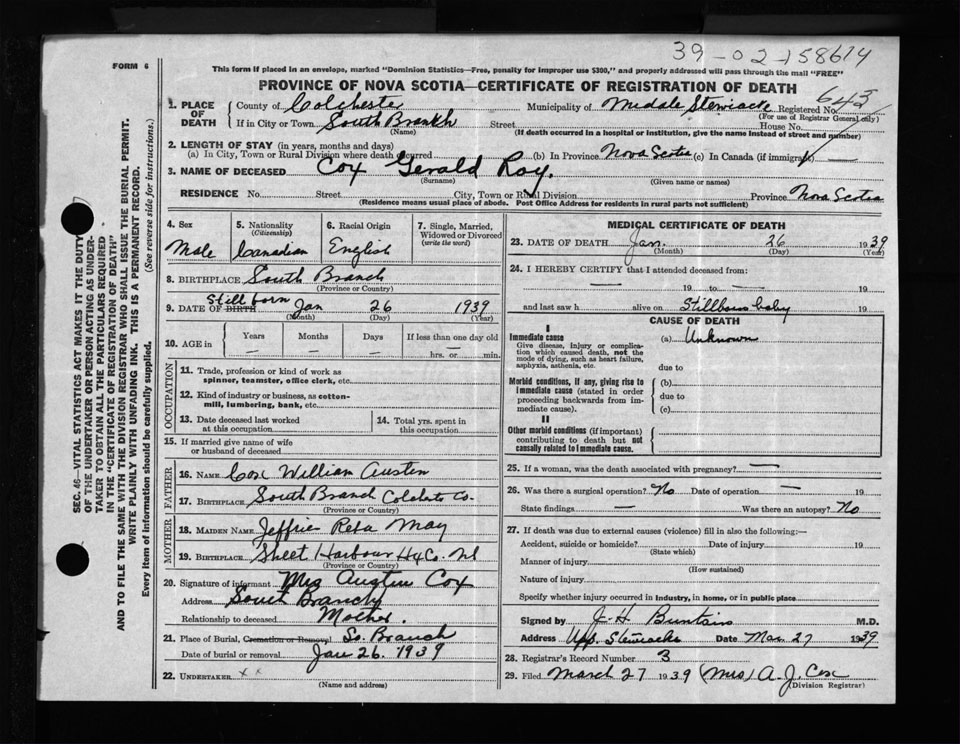 39-02-158614
FORM 6
This form if placed in an envelope, marked "Dominion Statistics—Free, penalty for improper use $300," and properly addressed will pass through the mail "FREE"
PROVINCE OF NOVA SCOTIA—CERTIFICATE OF REGISTRATION OF DEATH
643
1. PLACE OF DEATH County of Colchester Municipality of Registered No.
(For use of Registrar General only)
If in City or Town South Branch Street House No.
(Name) (If death occurred in a hospital or institution, give the name instead of street and number)
2. LENGTH OF STAY (in years, months and days)
(a) In City, Town or Rural Division where death occurred (b) In Province Nova Scotia (c) In Canada (if immigrant) —
3. NAME OF DECEASED Cox Gerald Roy.
(Surname) (Given name or names)
RESIDENCE No. Street City, Town or Rural Division Province Nova Scotia
(Residence means usual place of abode. Post Office Address for residents in rural parts not sufficient)
SEC. 46—VITAL STATISTICS ACT MAKES IT THE DUTY
OF THE UNDERTAKER OR PERSON ACTING AS UNDER-
TAKER TO OBTAIN ALL THE PARTICULARS REQUIRED
IN THE "CERTIFICATE OF REGISTRATION OF DEATH"
AND TO FILE THE SAME WITH THE DIVISION REGISTRAR WHO SHALL ISSUE THE BURIAL PERMIT.
WRITE PLAINLY WITH UNFADING INK. THIS IS A PERMANENT RECORD.
Every item of information should be carefully supplied. (See reverse side for instructions.)
4. Sex Male
5. Nationality (Citizenship) Canadian
6. Racial Origin English
7. Single, Married, Widowed or Divorced (write the word)
8. BIRTHPLACE South Branch
(Province or County)
Still born
9. DATE OF BIRTH Jan 26 1939
(Month) (Day) (Year)
10. AGE in Years — Months — Days — If less than one day old — hrs. or min.
OCCUPATION
11. Trade, profession or kind of work as
spinner, teamster, office clerk, etc.
12. Kind of industry or business, as cotton-
mill, lumbering, bank, etc.
13. Date deceased last worked
at this occupation
14. Total yrs. spent in
this occupation
15. If married give name of wife
or husband of deceased
FATHER
16. NAME Cox William Austin
17. BIRTHPLACE South Branch Colchester Co.
(Province or County)
MOTHER
18. MAIDEN NAME Jeffrie Reta May
19. BIRTHPLACE Sheet Harbour Hfx Co. NS
(Province or County)
20. Signature of informant Mrs Austin Cox
Address South Branch
Relationship to deceased Mother.
21. Place of Burial, Cremation or Removal So. Branch
Date of burial or removal Jan 26. 1939
22. UNDERTAKER x x
(Name and address)
MEDICAL CERTIFICATE OF DEATH
23. DATE OF DEATH Jan. 26 1939
(Month) (Day) (Year)
24. I HEREBY CERTIFY that I attended deceased from:
— 19 — to — 19
and last saw h alive on Stillborn baby 19
CAUSE OF DEATH
I
Immediate cause
Give disease, injury or complica-
tion which caused death, not the
mode of dying, such as heart failure,
asphyxia, asthenia, etc.
(a) Unknown
due to
Morbid conditions, if any, giving rise to
immediate cause (stated in order
proceeding backwards from im-
mediate cause).
(b)
due to
(c)
II
Other morbid conditions (if important)
contributing to death but not
causally related to immediate cause.
25. If a woman, was the death associated with pregnancy? —
26. Was there a surgical operation? No Date of operation — 19
State findings — Was there an autopsy? No
27. If death was due to external causes (violence) fill in also the following:—
Accident, suicide or homicide? Date of injury 19
(State which)
Manner of injury
(How sustained)
Nature of injury
Specify whether injury occurred in industry, in home, or in public place
Signed by J. H. Buntain M.D.
Address Upp. Stewiacke Date Mar 27 1939
28. Registrar's Record Number 3
29. Filed March 27 1939 (Mrs) A. J. Cox
(Division Registrar)